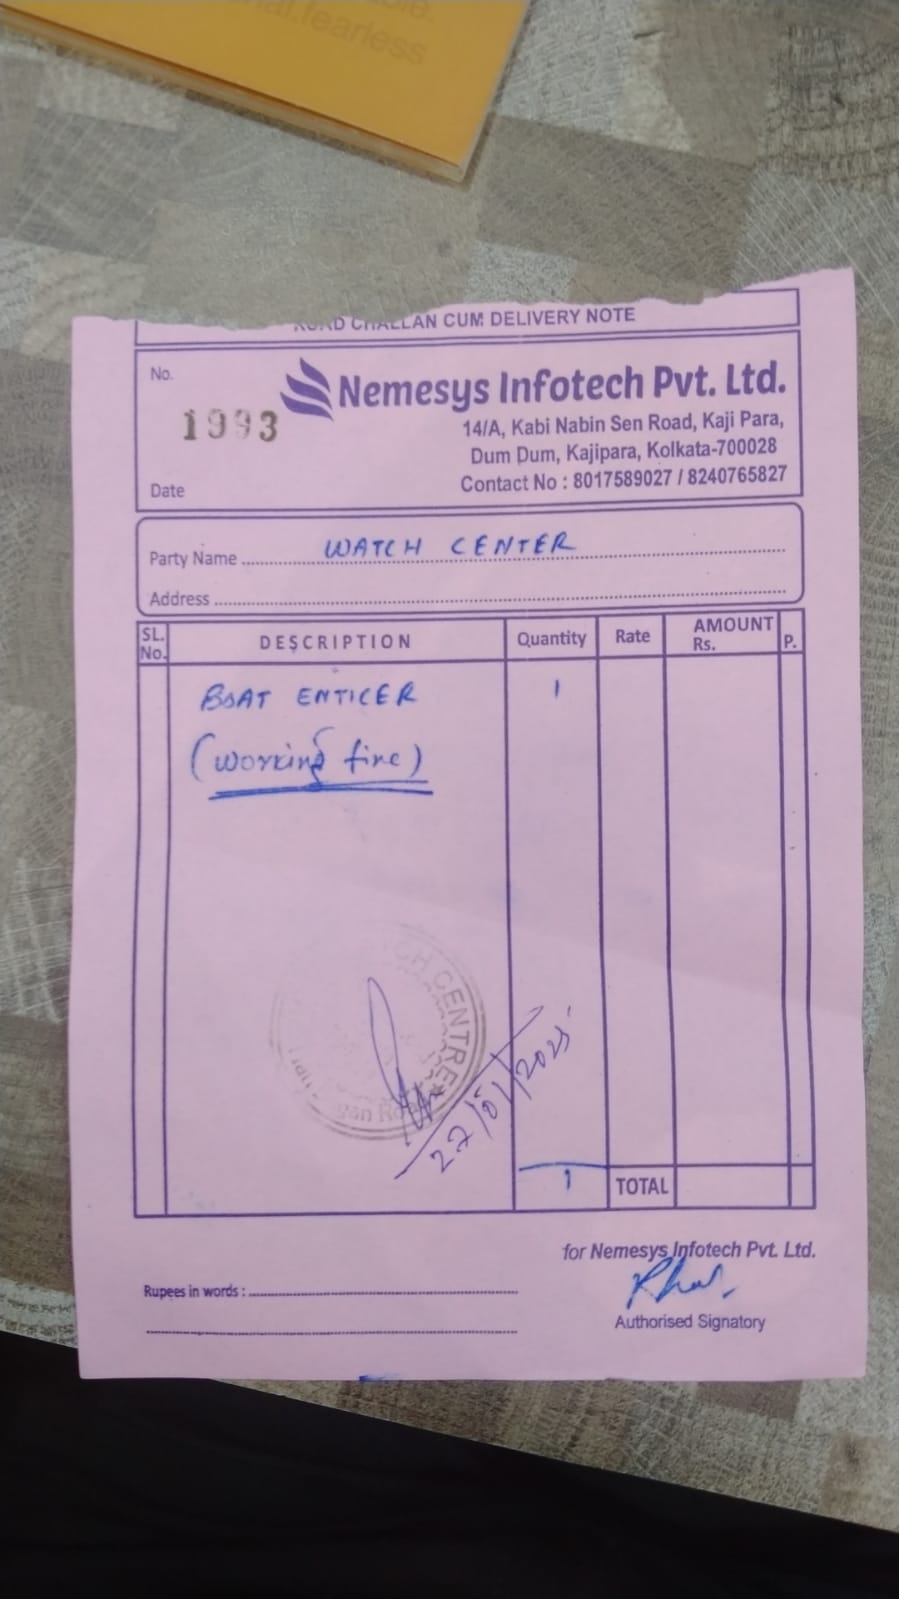 fearless
ROAD CHALLAN CUM DELIVERY NOTE
No.
1993
Nemesys Infotech Pvt. Ltd.
14/A, Kabi Nabin Sen Road, Kaji Para,
Dum Dum, Kajipara, Kolkata-700028
Contact No : 8017589027 / 8240765827
Date
Party Name WATCH CENTER
Address
SL. No. DESCRIPTION Quantity Rate AMOUNT Rs. P.
BOAT ENTICER 1
(working fine)
CENTRE
22/01/2025
1 TOTAL
for Nemesys Infotech Pvt. Ltd.
Rupees in words :
Authorised Signatory